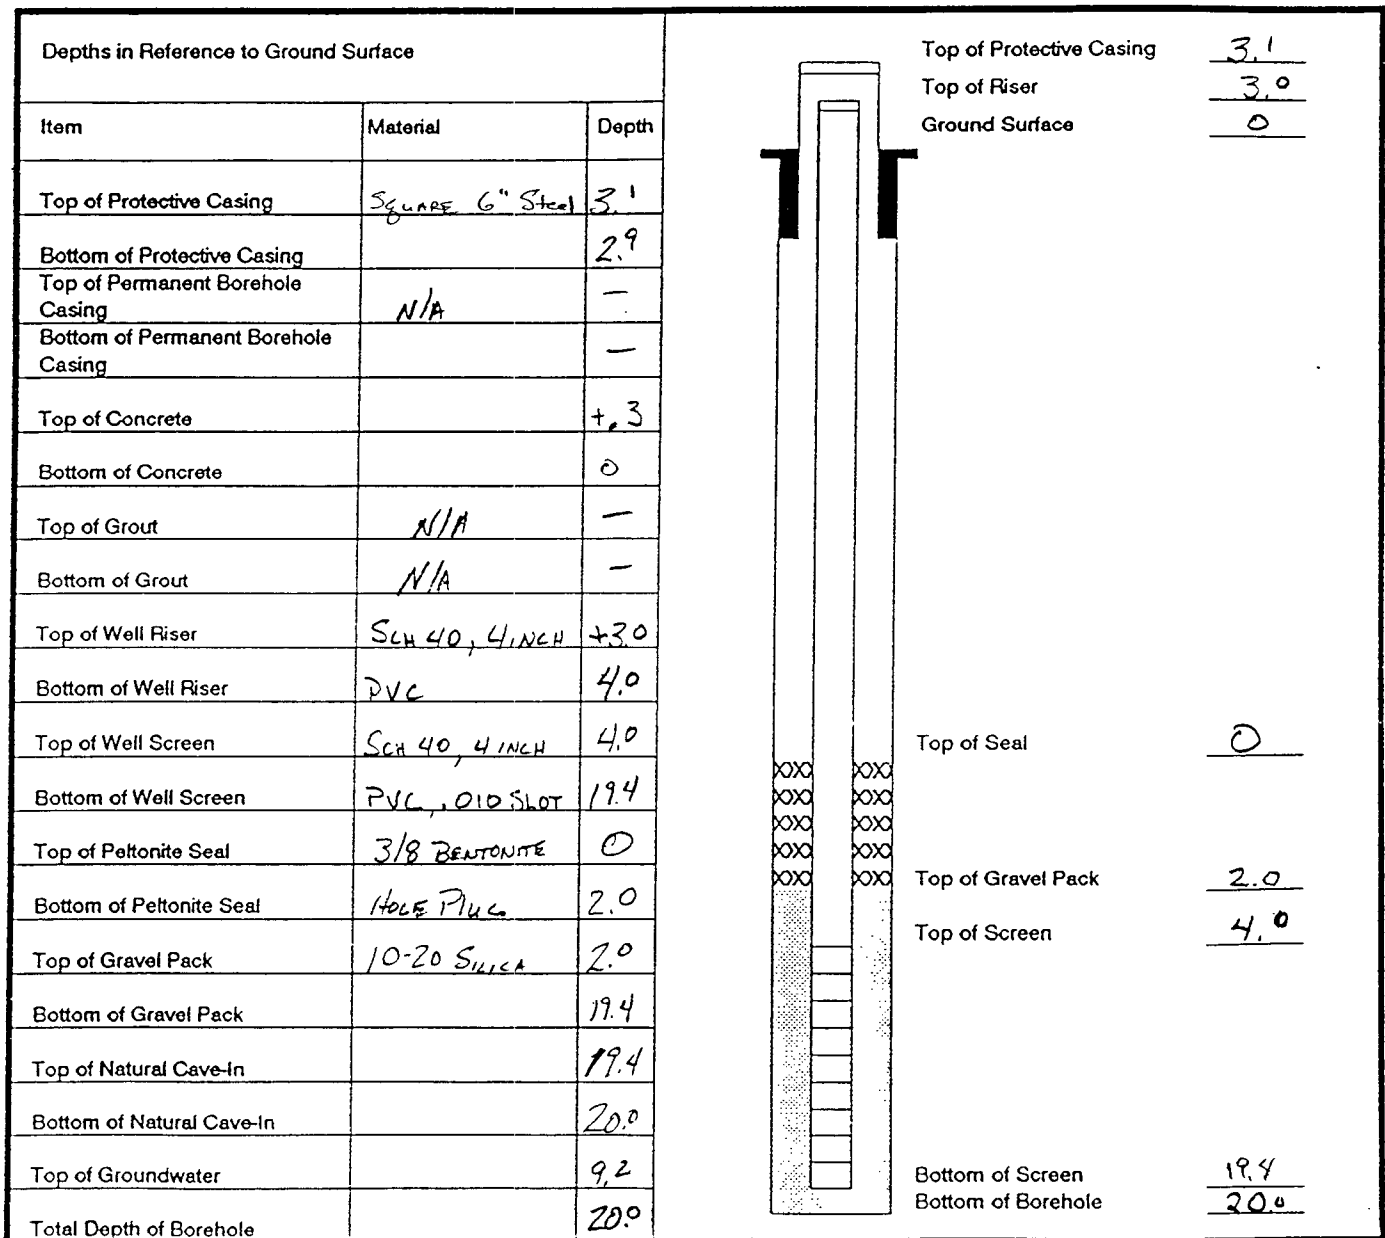 Depths in Reference to Ground Surface
Item Material Depth
Top of Protective Casing SQUARE 6" Steel 3.1
Bottom of Protective Casing 2.9
Top of Permanent Borehole
Casing N/A —
Bottom of Permanent Borehole
Casing —
Top of Concrete +.3
Bottom of Concrete 0
Top of Grout N/A —
Bottom of Grout N/A —
Top of Well Riser SCH 40, 4 INCH +3.0
Bottom of Well Riser PVC 4.0
Top of Well Screen SCH 40, 4 INCH 4.0
Bottom of Well Screen PVC, .010 SLOT 19.4
Top of Peltonite Seal 3/8 BENTONITE 0
Bottom of Peltonite Seal HOLE PLUG 2.0
Top of Gravel Pack 10-20 SILICA 2.0
Bottom of Gravel Pack 19.4
Top of Natural Cave-In 19.4
Bottom of Natural Cave-In 20.0
Top of Groundwater 9.2
Total Depth of Borehole 20.0
Top of Protective Casing 3.1
Top of Riser 3.0
Ground Surface 0
Top of Seal 0
Top of Gravel Pack 2.0
Top of Screen 4.0
Bottom of Screen 19.4
Bottom of Borehole 20.0